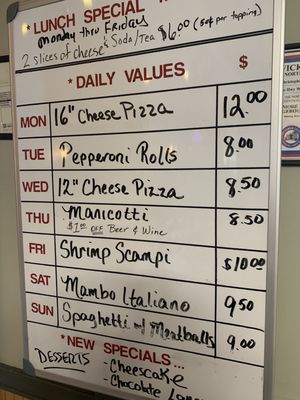 * LUNCH SPECIAL
Monday thru Fridays
2 slices of cheese & Soda/Tea $6.00 (50¢ per topping)
* DAILY VALUES $
MON 16" Cheese Pizza 12.00
TUE Pepperoni Rolls 8.00
WED 12" Cheese Pizza 8.50
THU Manicotti 8.50
$1.00 OFF Beer & Wine
FRI Shrimp Scampi $10.00
SAT Mambo Italiano 9.50
SUN Spaghetti w/ Meatballs 9.00
*NEW SPECIALS...
DESSERTS - Cheescake
- Chocolate